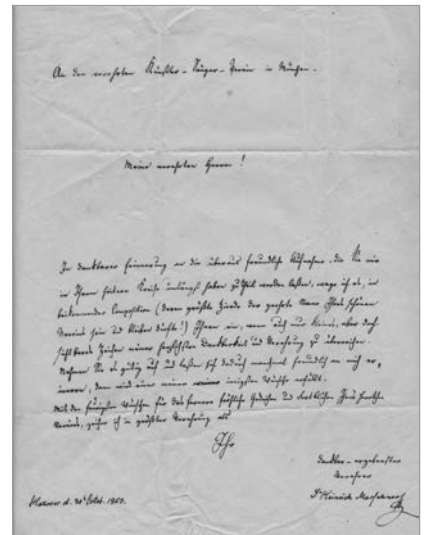 An den verehrten Künstler-Sänger-Verein in München.
Meine verehrten Herren!
In dankbarer Erinnerung an die überaus freundliche Aufnahme, die Sie mir
in Ihrem heitern Kreise unlängst haben zu Theil werden lassen, wage ich es, in
beikommender Composition (deren größte Zierde der geehrte Name Ihres schönen
Vereins sein und bleiben dürfte!) Ihnen ein, wenn auch nur kleines, aber doch
sichtbares Zeichen meiner herzlichsten Dankbarkeit und Verehrung zu überreichen.
Nehmen Sie es gütig auf und lassen sich dadurch manchmal freundlich an mich er-
innern, dann wird einer meiner innigsten Wünsche erfüllt.
Mit den Wünschen für das fernere fröhliche Gedeihen und Fortblühen Ihres
Vereins, zeichne ich in größter Verehrung als
Ihr
dankbar-ergebenster
Verehrer
Dr Heinrich Marschner
Hannover d.